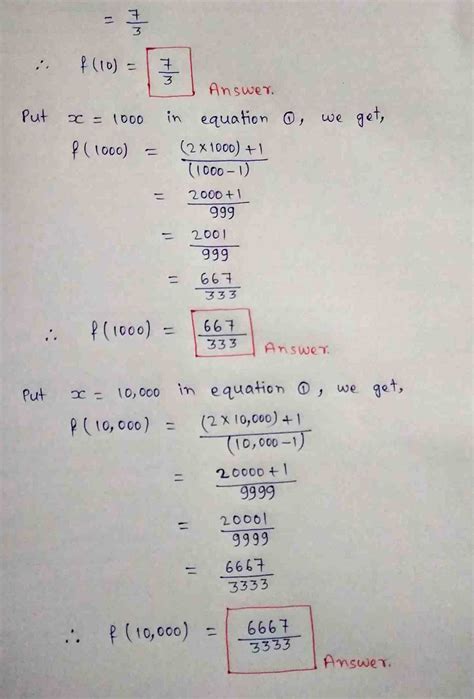 = 7/3
∴ f(10) = 7/3 Answer.
Put x = 1000 in equation ①, we get,
f(1000) = (2×1000)+1/(1000-1)
= 2000+1/999
= 2001/999
= 667/333
∴ f(1000) = 667/333 Answer.
Put x = 10,000 in equation ①, we get,
f(10,000) = (2×10,000)+1/(10,000-1)
= 20000+1/9999
= 20001/9999
= 6667/3333
∴ f(10,000) = 6667/3333 Answer.